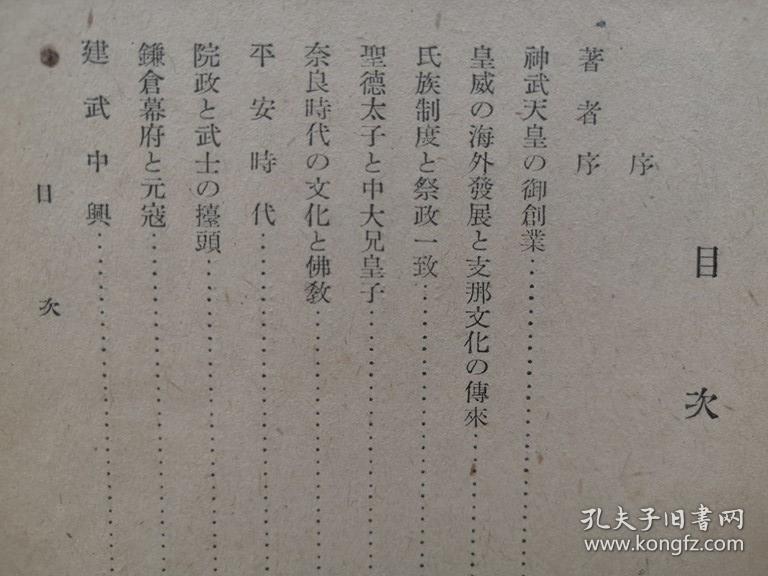 目次
序
著者序
神武天皇の御創業
皇威の海外發展と支那文化の傳來
氏族制度と祭政一致
聖德太子と中大兄皇子
奈良時代の文化と佛敎
平安時代
院政と武士の擡頭
鎌倉幕府と元寇
建武中興
目次
孔夫子旧书网
www.kongfz.com